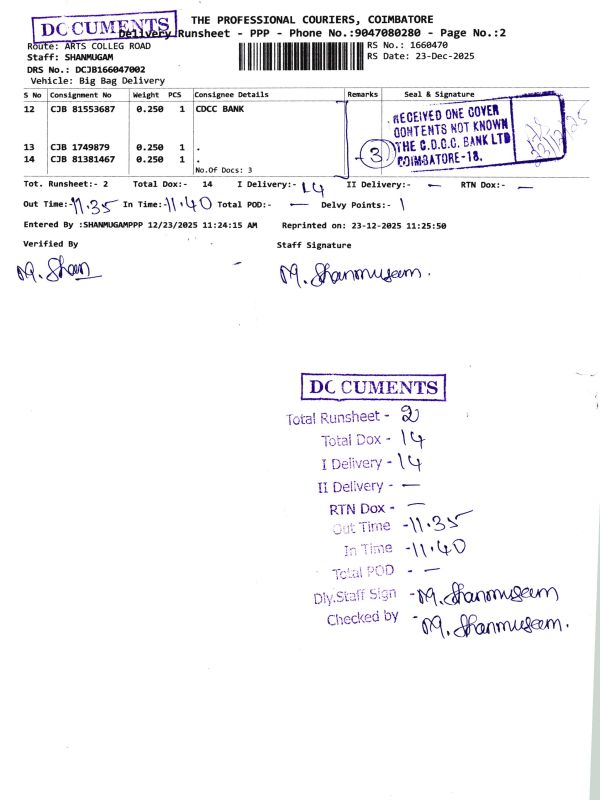 THE PROFESSIONAL COURIERS, COIMBATORE
DOCUMENTS
Delivery Runsheet - PPP - Phone No.:9047080280 - Page No.:2
Route: ARTS COLLEG ROAD
RS No.: 1660470
Staff: SHANMUGAM
RS Date: 23-Dec-2025
DRS No.: DCJB166047002
Vehicle: Big Bag Delivery
S No Consignment No Weight PCS Consignee Details Remarks Seal & Signature
12 CJB 81553687 0.250 1 CDCC BANK
13 CJB 1749879 0.250 1 .
14 CJB 81381467 0.250 1 .
No.Of Docs: 3
3
RECEIVED ONE COVER
CONTENTS NOT KNOWN
THE C.D.C.C. BANK LTD
COIMBATORE-18.
23/12/25
Tot. Runsheet:- 2 Total Dox:- 14 I Delivery:- 14 II Delivery:- — RTN Dox:- —
Out Time:- 11.35 In Time:- 11.40 Total POD:- — Delvy Points:- 1
Entered By :SHANMUGAMPPP 12/23/2025 11:24:15 AM Reprinted on: 23-12-2025 11:25:50
Verified By Staff Signature
M. Sham M. Shanmugam.
DOCUMENTS
Total Runsheet - 2
Total Dox - 14
I Delivery - 14
II Delivery - —
RTN Dox - —
Out Time - 11.35
In Time - 11.40
Total POD - —
Dly.Staff Sign - M. Shanmugam
Checked by - M. Shanmugam.